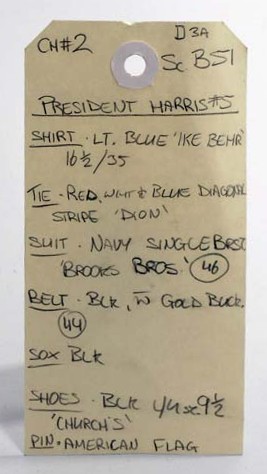 CH#2
D3A
Sc B51
PRESIDENT HARRIS #5
SHIRT · LT. BLUE 'IKE BEHR'
16½/35
TIE · RED, WHT & BLUE DIAGONAL
STRIPE 'DION'
SUIT · NAVY SINGLE BRST
'BROOKS BROS.' 46
BELT · BLK, W GOLD BUCK.
44
SOX BLK
SHOES · BLK 9½
'CHURCH'S'
PIN · AMERICAN FLAG